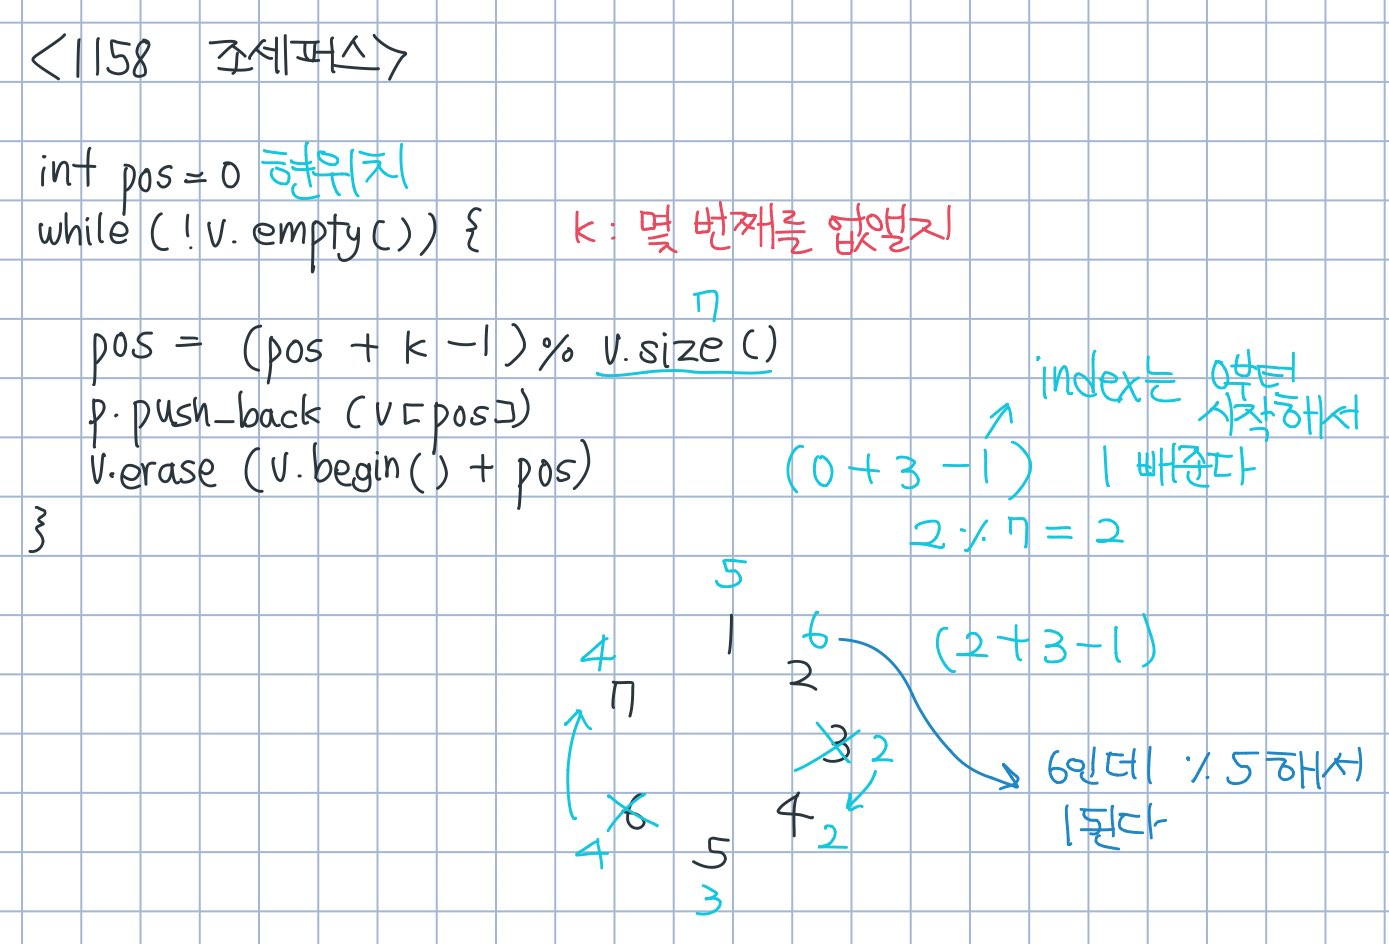 <1158 조세퍼스>
int pos = 0 현위치
while (!v.empty()) {
k : 몇 번째를 없앨지
7
pos = (pos + k -1) % v.size()
p.push_back (v[pos])
v.erase (v.begin() + pos)
}
index는 0부터
시작해서
1 빼준다
(0 + 3 - 1)
2 % 7 = 2
5
1
6
(2+3-1)
4
2
7
3
2
6인데 % 5 해서
1된다
6
4
2
4
5
3